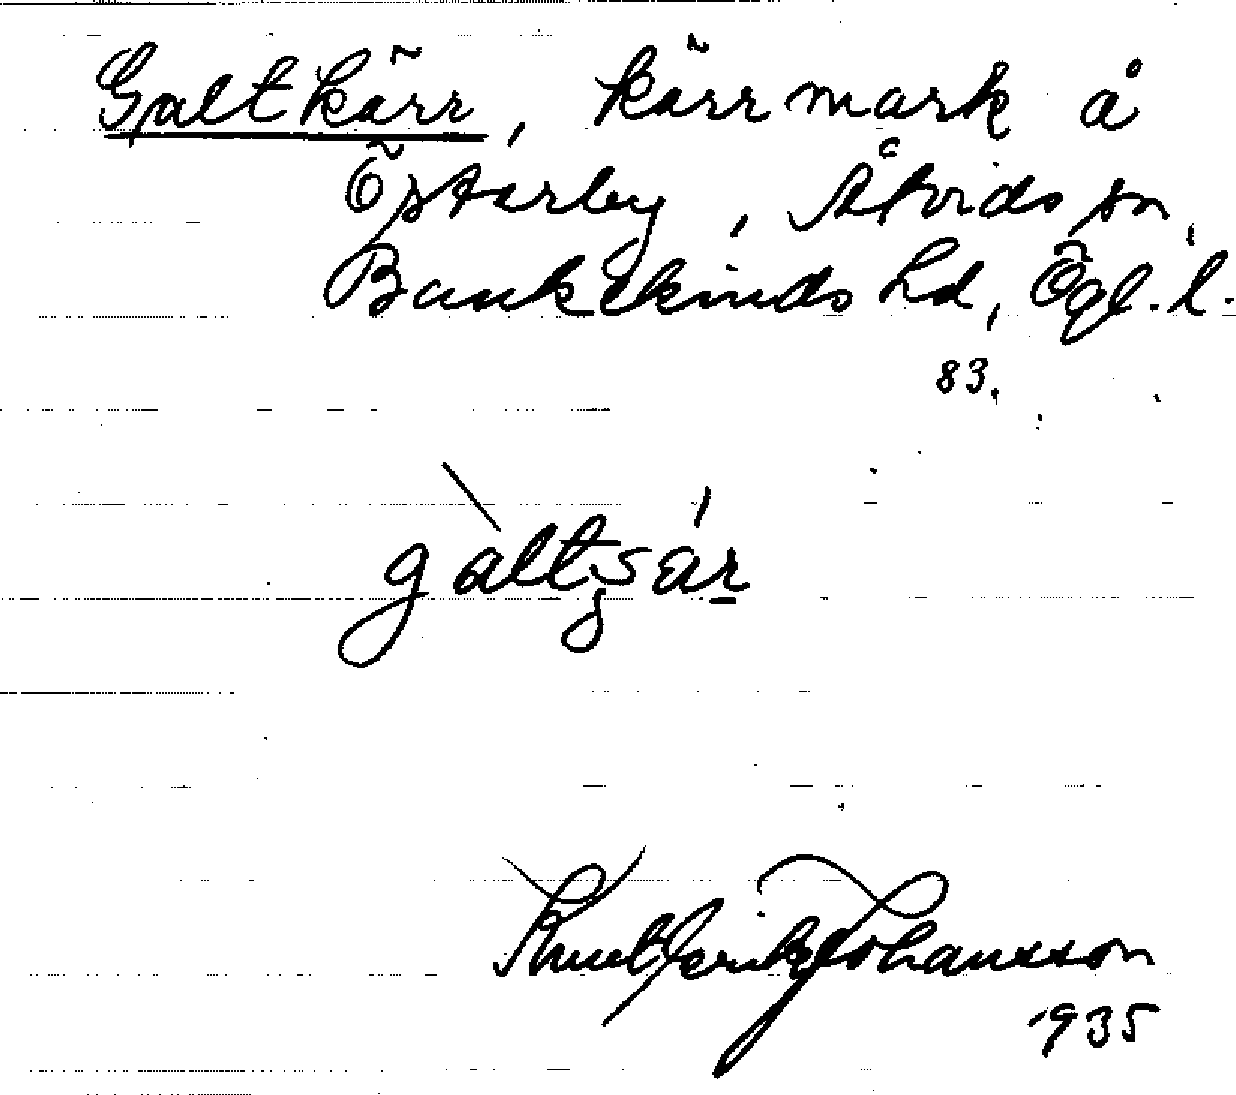 Galtkärr, kärrmark å
Östarby, Åtvids sn,
Bankekinds hd, Ögl. l.
83.
gàltsár
Knut Erik Johansson
1935